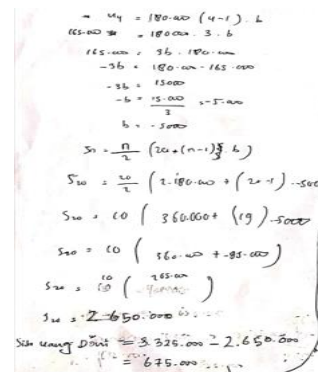 u4 = 180.000 (4-1) . b
165.000 = 180000 . 3 . b
165.000 = 3b . 180.000
-3b = 180.000 - 165.000
-3b = 15000
-b = 15.000 / 3 = -5.000
b = -5000
Sn = n/2 (2a + (n-1) . b)
S20 = 20/2 (2.180.000 + (20-1) -5000
S20 = 10 ( 360.000 + (19) -5000
S20 = 10 ( 360.000 + -95.000 )
S20 = 10 ( 265.000 )
S20 = 2.650.000
Sisa uang Doni = 3.325.000 - 2.650.000
= 675.000